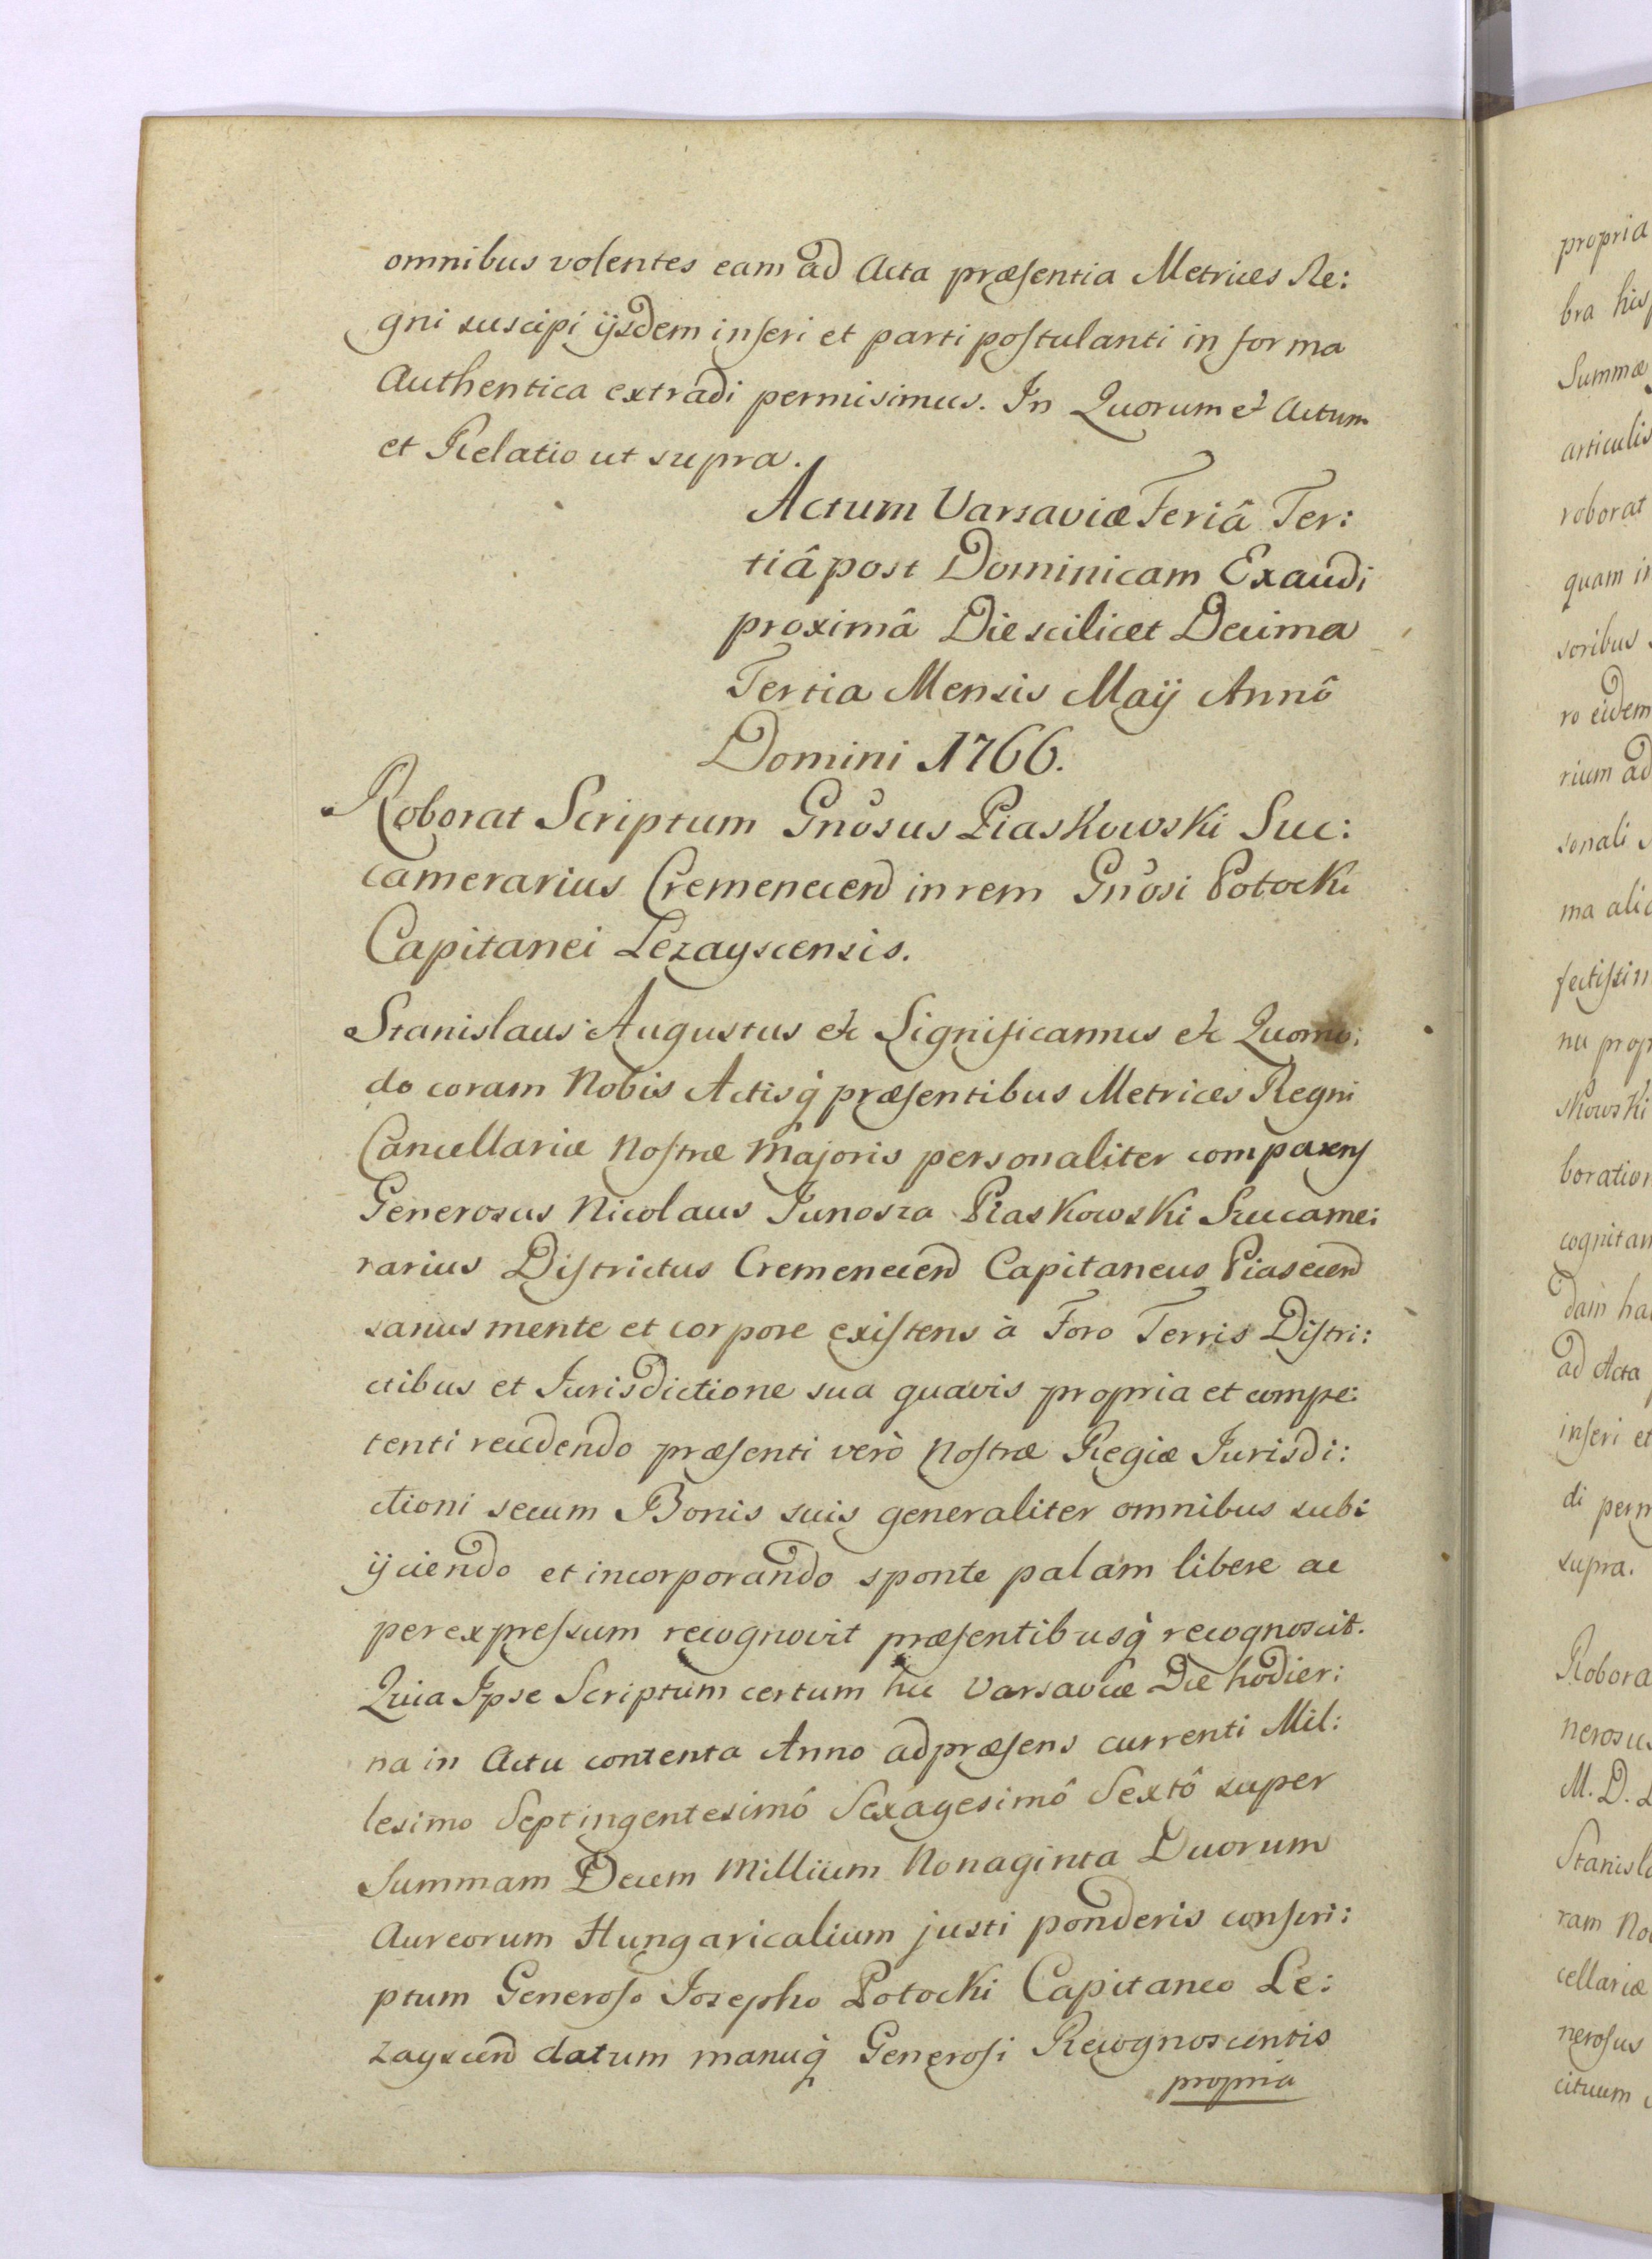 omnibus volentes eam ad Acta præsentia Metrices Re:
gni suscipi ijsdem inseri et parti postulanti in forma
Authentica extradi permisimus. In Quorum et Actum
et Relatio ut supra.
Actum Varsaviæ Feriâ Ter:
tiâ post Dominicam Exaudi
proximâ Die scilicet Decima
Tertia Mensis Maij Annô
Domini 1766.
Roborat Scriptum Gnôsus Piaskowski Suc:
camerarius Cremenecen in rem Gnôsi Potocki
Capitanei Lezayscensis.
Stanislaus Augustus etc Significamus etc Quomo:
do coram Nobis Actisq̃ præsentibus Metrices Regni
Cancellariæ Nostræ Majoris personaliter comparens
Generosus Nicolaus Junosza Piaskowski Succame:
rarius Districtus Cremenecen Capitaneus Piasecen
sanus mente et corpore existens à Foro Terris Distri:
ctibus et Jurisdictione sua quavis propria et compe:
tenti recedendo præsenti verò Nostræ Regiæ Jurisdi:
ctioni secum Bonis suis generaliter omnibus sub:
ijciendo et incorporando sponte palam libere ac
per expressum recognovit præsentibusq̃ recognoscit.
Quia Ipse Scriptum certum hic Varsaviæ Die hodier:
na in Actu contenta Anno ad præsens currenti Mil:
lesimo Septingentesimô Sexagesimô Sextô super
Summam Decem Millium Nonaginta Duorum
Aureorum Hungaricalium justi ponderis conscri:
ptum Generoso Josepho Potocki Capitaneo Le:
zayscen datum manuq̃ Generosi Recognoscentis
propria
propria
bra his
Summæ
articulis
roborat
quam in
soribus
ro eidem
rium ad
sonali
ma ali
fectissim
nu prop
skowski
boration
cognitam
dam ha
ad Acta
inseri et
di perm
supra.
Robora
nerosus
M. D.
Stanisla
ram No
cellariæ
nerosus
cituum